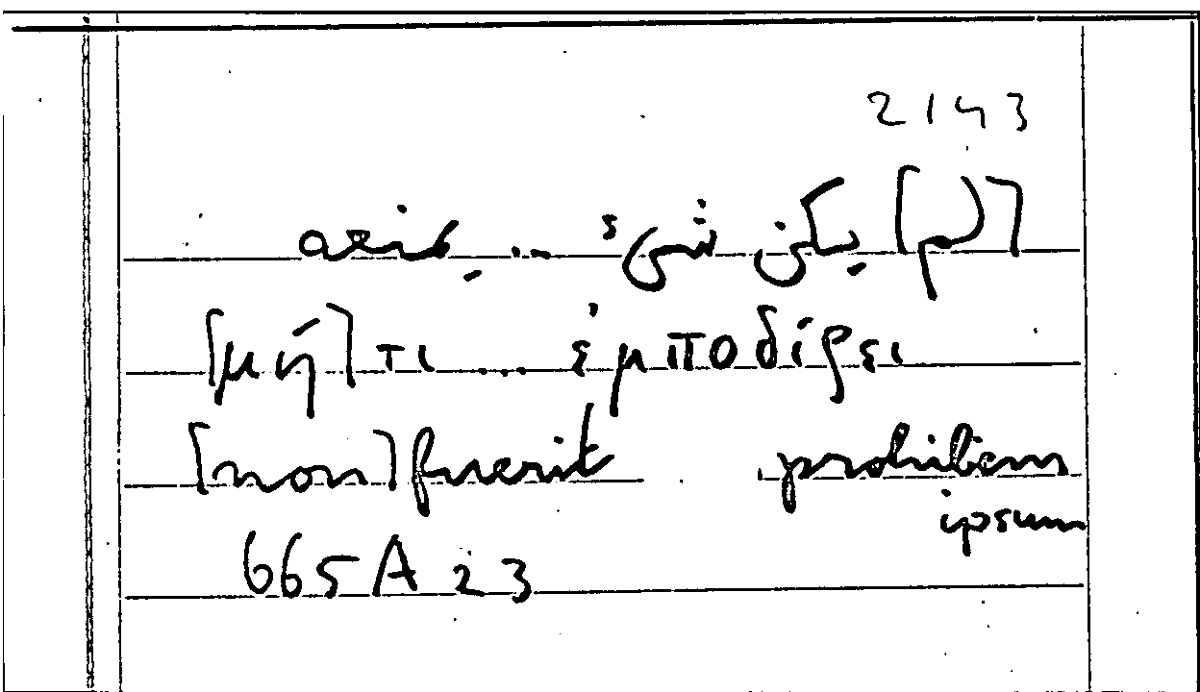 2143
[لم] يكن شيء ... يمنعه
[μή] τι ... ἐμποδίζει
[non] fuerit prohibens
ipsum
665A 23